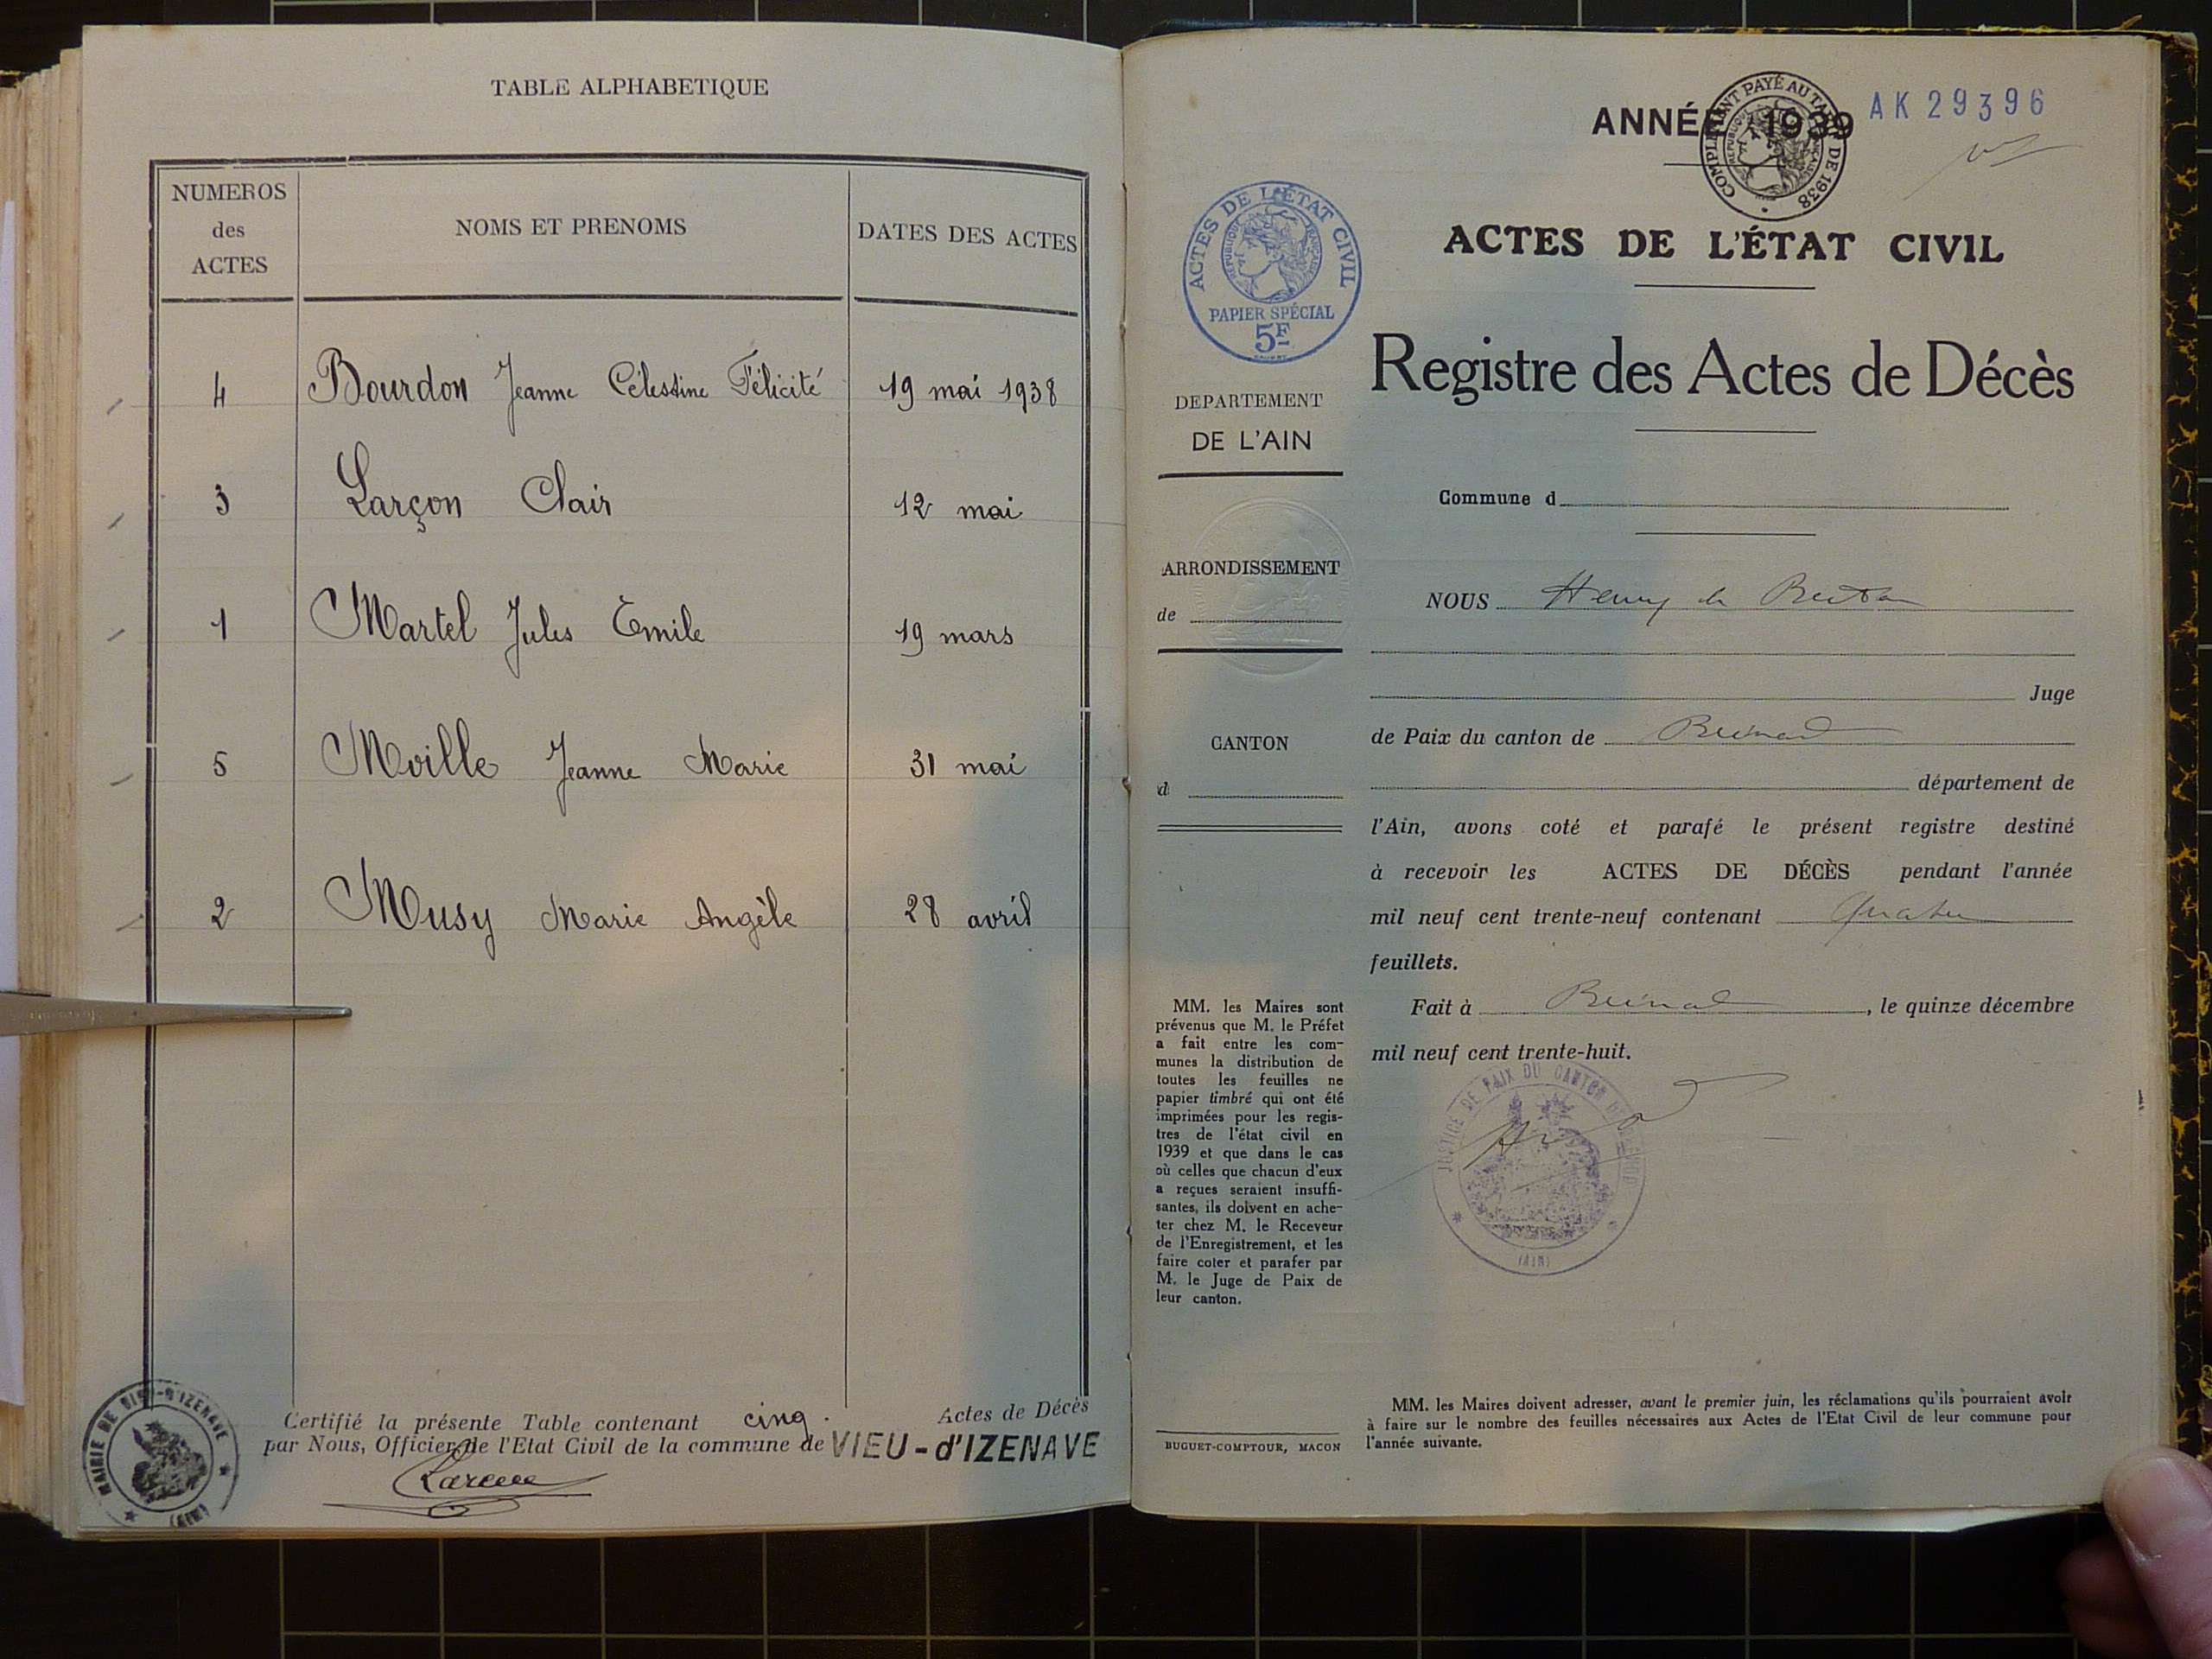 TABLE ALPHABETIQUE
NUMEROS
des
ACTES
NOMS ET PRENOMS
DATES DES ACTES
4 Bourdon Jeanne Célestine Félicité 19 mai 1938
3 Larçon Clair 12 mai
1 Martel Jules Emile 19 mars
5 Moille Jeanne Marie 31 mai
2 Musy Marie Angèle 28 avril
Certifié la présente Table contenant cinq Actes de Décès
par Nous, Officier de l'Etat Civil de la commune de VIEU-d'IZENAVE
MAIRIE DE VIEU-D'IZENAVE
(AIN)
ANNÉE 1939
AK 29396
COMPLEMENT PAYÉ AU TARIF DE 1938
ACTES DE L'ÉTAT CIVIL
REPUBLIQUE FRANÇAISE
PAPIER SPÉCIAL
5F
DEPARTEMENT
DE L'AIN
ARRONDISSEMENT
de
CANTON
d
MM. les Maires sont
prévenus que M. le Préfet
a fait entre les com-
munes la distribution de
toutes les feuilles ne
papier timbré qui ont été
imprimées pour les regis-
tres de l'état civil en
1939 et que dans le cas
où celles que chacun d'eux
a reçues seraient insuffi-
santes, ils doivent en ache-
ter chez M. le Receveur
de l'Enregistrement, et les
faire coter et parafer par
M. le Juge de Paix de
leur canton.
BUGUET-COMPTOUR, MACON
ACTES DE L'ÉTAT CIVIL
Registre des Actes de Décès
Commune d
NOUS Henry
Juge
de Paix du canton de Brénod
département de
l'Ain, avons coté et parafé le présent registre destiné
à recevoir les ACTES DE DÉCÈS pendant l'année
mil neuf cent trente-neuf contenant Quatre
feuillets.
Fait à Brénod, le quinze décembre
mil neuf cent trente-huit.
JUSTICE DE PAIX DU CANTON DE BRÉNOD
(AIN)
MM. les Maires doivent adresser, avant le premier juin, les réclamations qu'ils pourraient avoir
à faire sur le nombre des feuilles nécessaires aux Actes de l'Etat Civil de leur commune pour
l'année suivante.